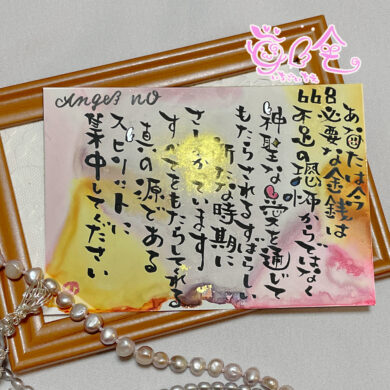 Angel no
668
あなたは今
必要な金銭は
不足の恐怖からではなく
神聖な愛を通じて
もたらされるすばらしい
新たな時期に
さしかかっています
すべてをもたらしてくれる
真の源である
スピリットに
集中してください